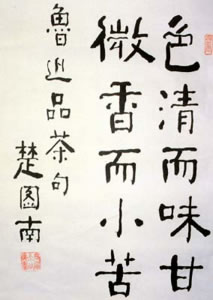 色清而味甘
微香而小苦
鲁迅品茶句
楚图南